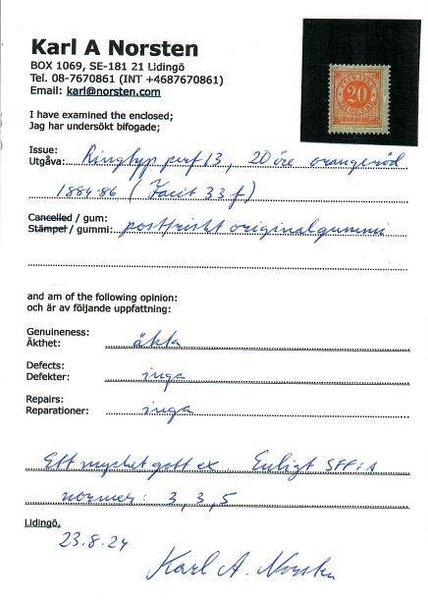 Karl A Norsten
BOX 1069, SE-181 21 Lidingö
Tel. 08-7670861 (INT +4687670861)
Email: karl@norsten.com
20
I have examined the enclosed;
Jag har undersökt bifogade;
Issue:
Utgåva: Ringtyp perf 13, 20 öre orangeröd
1884-86 (Facit 33f)
Cancelled / gum:
Stämpel / gummi: postfriskt originalgummi
and am of the following opinion:
och är av följande uppfattning:
Genuineness:
Äkthet: äkta
Defects:
Defekter: inga
Repairs:
Reparationer: inga
Ett mycket gott ex. Enligt SFF:s
normer: 3, 3, 5
Lidingö,
23.8.24
Karl A. Norsten